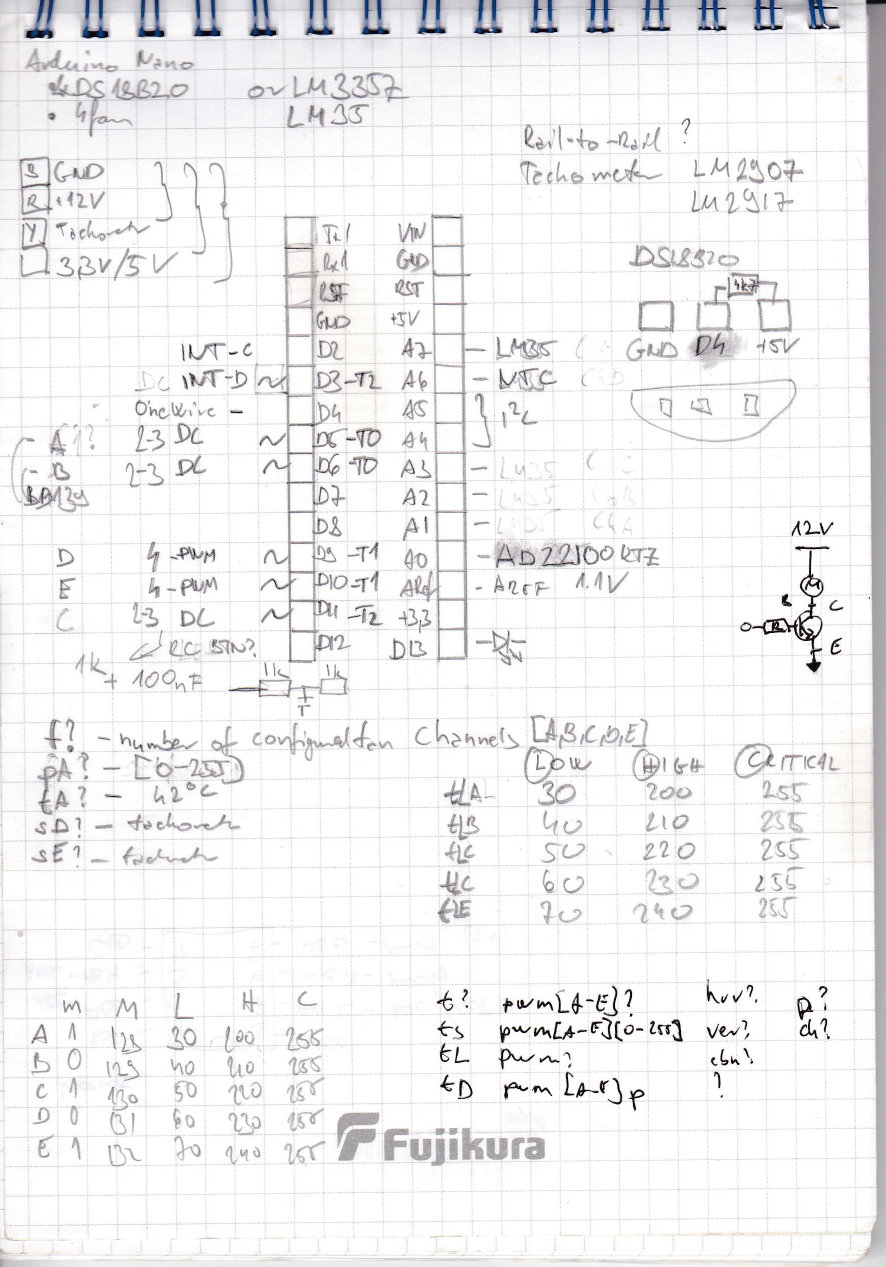 Arduino Nano
DS18B20 or LM335Z
• 4 fan LM35
Rail-to-Rail ?
Tachometer LM2907
LM2917
B GND
R +12V
Y Tachometr
3,3V/5V
Tx1 VIN
Rx1 GND
RST RST
GND +5V
INT-C D2 A7 - LM35
DC INT-D ~ D3-T2 A6 - NTC
OneWire - D4 A5
I²C
- A 1? 2-3 DC ~ D5-T0 A4
- B 2-3 DC ~ D6-T0 A3 - LM35
BD139 D7 A2 - LM35
D8 A1 - LM35 CHA
D 4-PWM ~ D9-T1 A0 - AD22100KTZ
E 4-PWM ~ D10-T1 ARef - AREF 1.1V
C 2-3 DC ~ D11-T2 +3,3
D12 D13
1k + 100nF
1k 1k
DS18B20
4k7
GND D4 +5V
12V
M
B C
R
E
f? - number of configuration Channels [A,B,C,D,E]
pA? - [0-255]
tA? - 42°C
sD? - tachometr
sE? - tachometr
LOW HIGH CRITICAL
tLA 30 200 255
tLB 40 210 255
tLC 50 220 255
tLC 60 230 255
tLE 70 240 255
m M L H C
A 1 129 30 200 255
B 0 129 40 210 255
C 1 130 50 220 255
D 0 131 60 230 255
E 1 132 70 240 255
t? pwm[A-E]? hw? p?
ts pwm[A-E][0-255] ver? ch?
tL pwm?
tD pwm[A-E]p ?
Fujikura